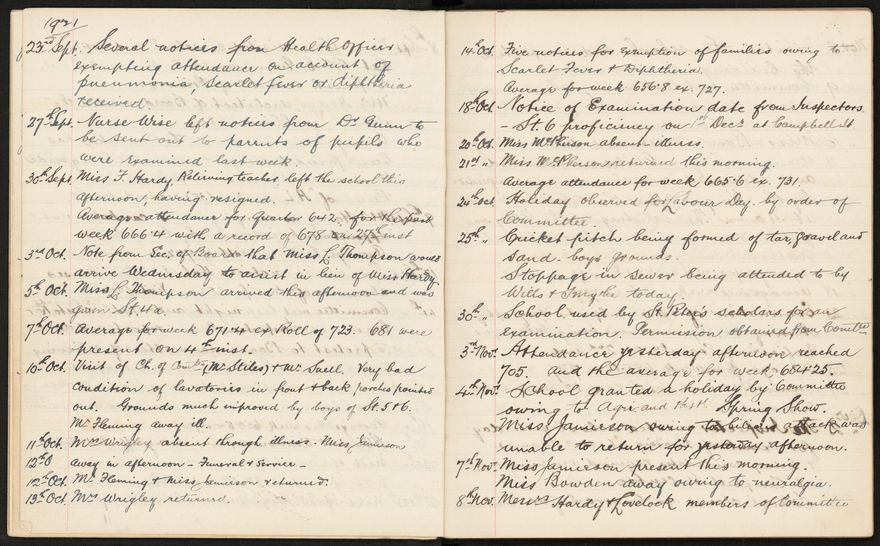 1921
23rd Sept. Several notices from Health Officer
exempting attendance on account of
pneumonia, scarlet fever or diphtheria
received.
27th Sept. Nurse Wise left notices from Dr Gunn to
be sent out to parents of pupils who
were examined last week.
30th Sept. Miss F. Hardy, Relieving teacher left the school this
afternoon, having resigned.
Average attendance for Quarter 642, for the past
week 666.4 with a record of 678 on 27th inst
3rd Oct. Note from Sec. of Board that Miss L. Thompson would
arrive Wednesday to assist in lieu of Miss Hardy
5th Oct. Miss L. Thompson arrived this afternoon and was
given St. 4a.
7th Oct. Average for week 671.4 ex Roll of 723. 681 were
present on 4th inst.
10th Oct. Visit of Ch. of Comtee (Mr Stiles) & Mr Snell. Very bad
condition of lavatories in front & back porches pointed
out. Grounds much improved by boys of St. 5 & 6.
Mr Fleming away ill.
11th Oct. Mrs Wrigley absent through illness. Miss Jamieson
12th O away in afternoon – Funeral & Service –
12th Oct. Mr Fleming & Miss Jamieson returned.
13th Oct. Mrs Wrigley returned.
14th Oct. Five notices for exemption of families owing to
Scarlet Fever & Diphtheria.
Average for week 656.8 ex. 727.
18th Oct Notice of Examination date from Inspectors
– St. 6 proficiency on 1st Decr at Campbell St
20th Oct. Miss McPherson absent – illness.
21st " Miss McPherson returned this morning.
Average attendance for week 665.6 ex. 731.
24th Oct. Holiday observed for Labour Day by order of
Committee
25th " Cricket pitch being formed of tar, gravel and
sand. boys grounds.
Stoppage in sewer being attended to by
Wills & Smythe today.
30th " School used by St. Peter's scholars for an
examination. Permission obtained from Comttee
3rd Nov. Attendance yesterday afternoon reached
705. and the average for week 684.25.
4th Nov. School granted a holiday by Committee
owing to Agr. and Past. Spring Show.
Miss Jamieson owing to attack was
unable to return for yesterday afternoon.
7th Nov. Miss Jamieson present this morning.
Miss Bowden away owing to neuralgia.
8th Nov. Messrs Hardy & Lovelock members of Committee